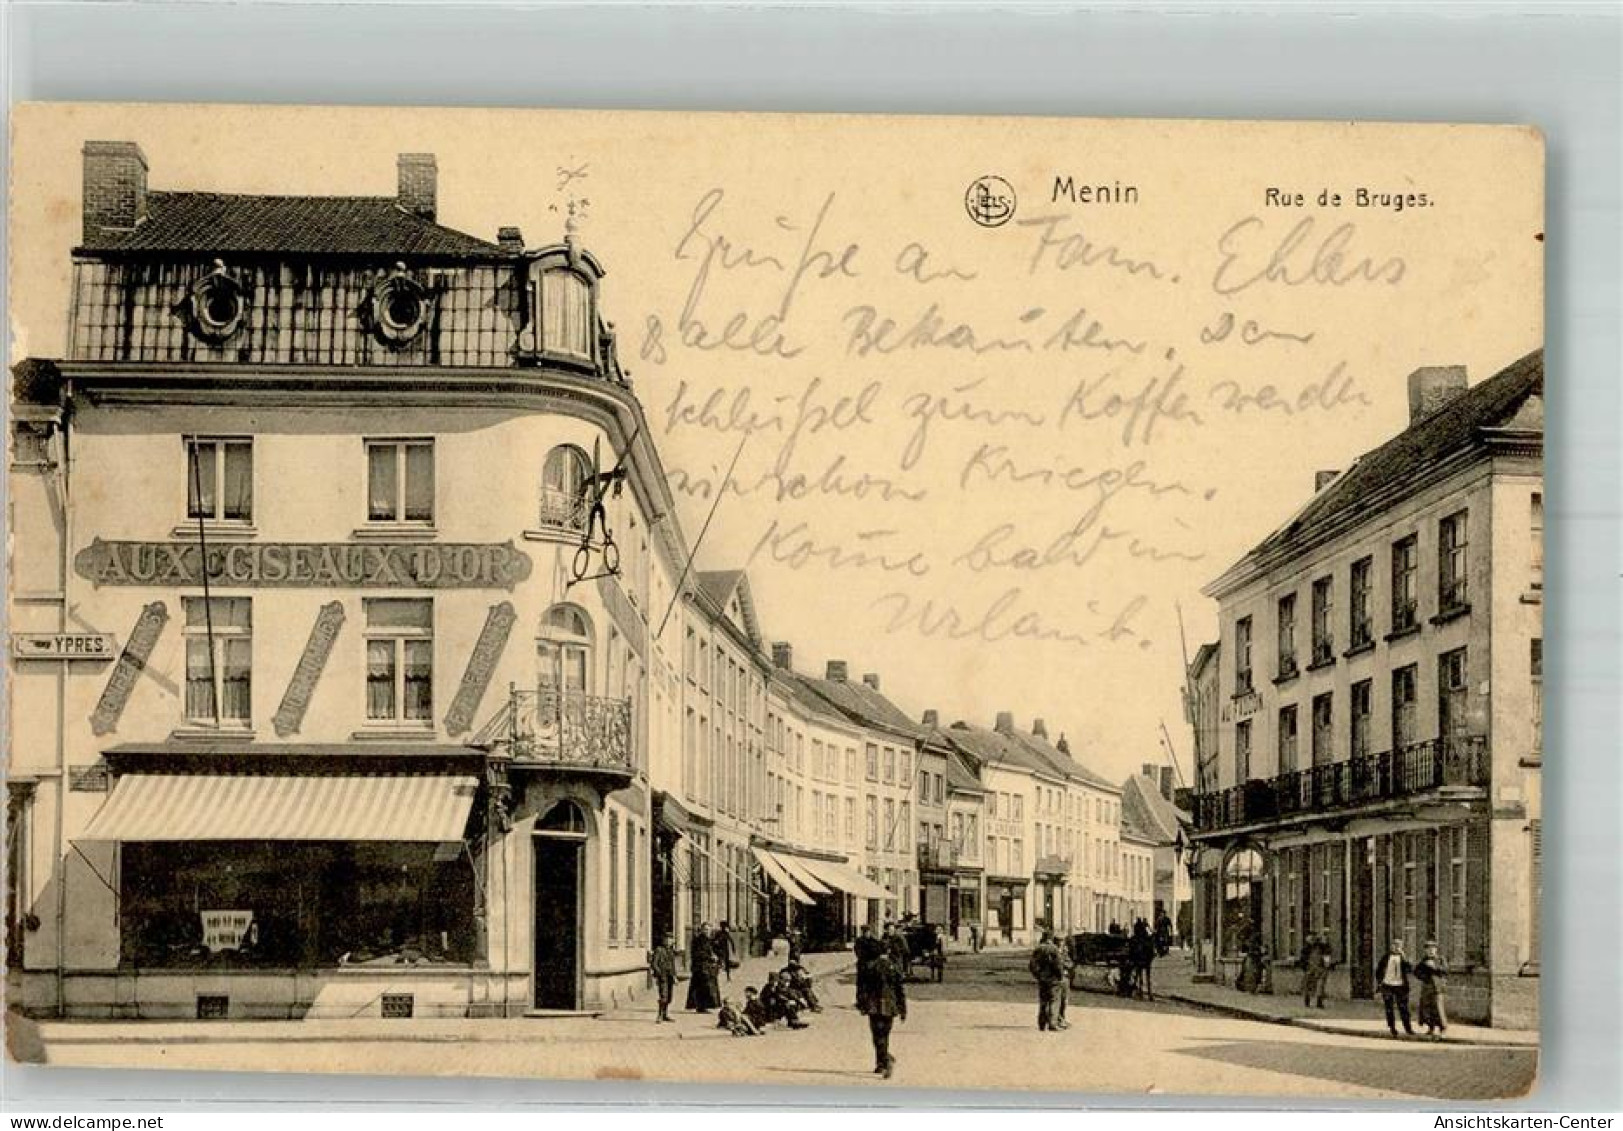 Menin
Rue de Bruges.
Grüße an Fam. Ehlers
& alle Bekannten, den
Schlüssel zum Koffer werden
wir schon Kriegen.
Kome bald in
Urlaub.
AUX CISEAUX D'OR
YPRES.
AU FAUCON
Ansichtskarten-Center